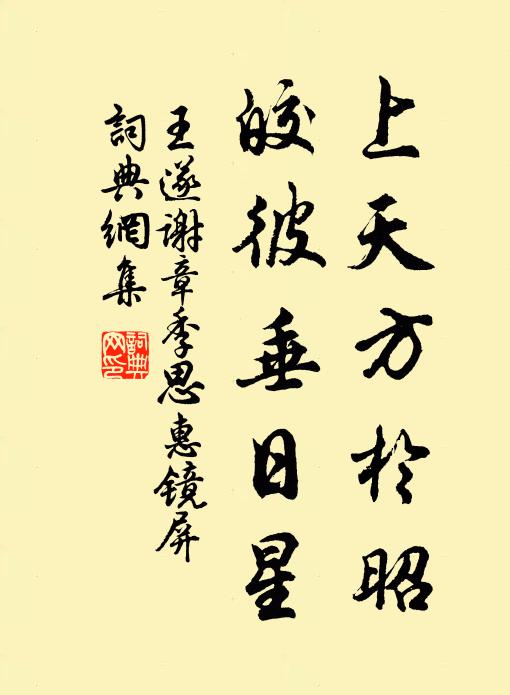 上天方於昭
皎彼垂日星
王遂谢章季思惠镜屏
詞典網集
詞典网印